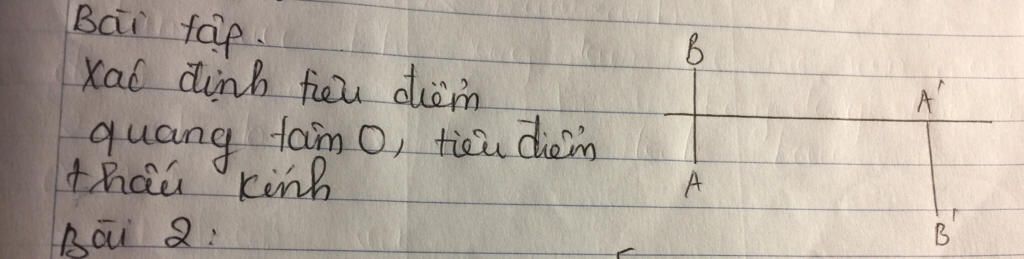 Bài tập.
Xác định tiêu điểm
quang tâm O, tiêu điểm
thấu kính
Bài 2:
B
A'
A
B'